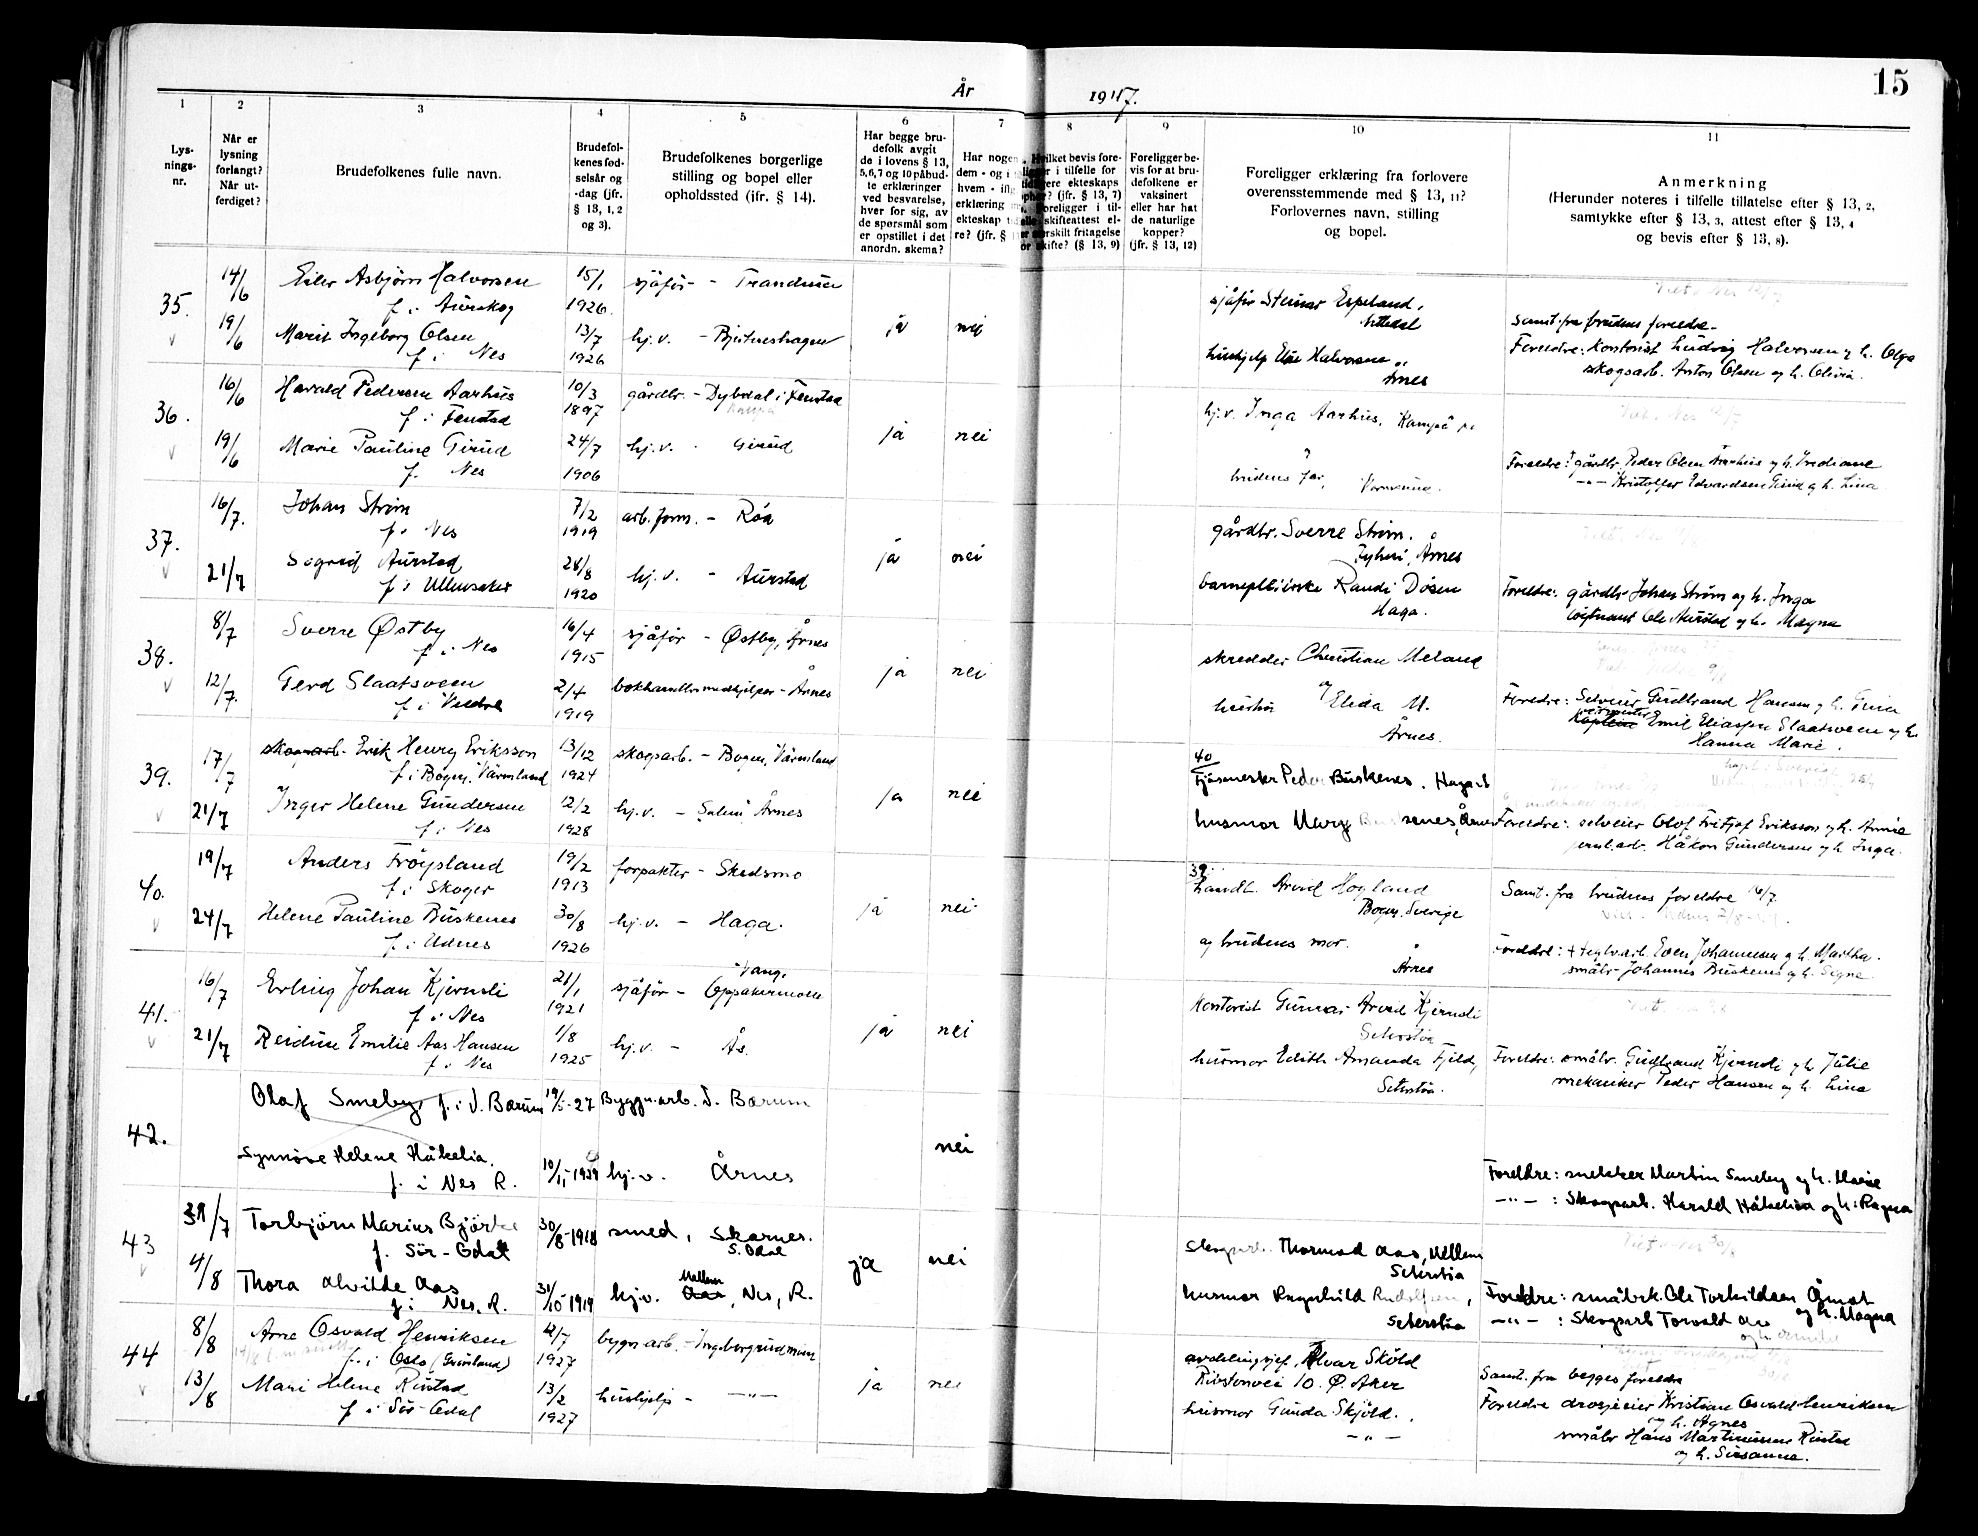 15
År 1947.
1 2 3 4 5 6 7 8 9 10 11
Lys-
nings-
nr.
Når er
lysning
forlangt?
Når ut-
ferdiget?
Brudefolkenes fulle navn.
Brudefol-
kenes fød-
selsår og
-dag (jfr.
§ 13, 1, 2
og 3).
Brudefolkenes borgerlige
stilling og bopel eller
opholdssted (ifr. § 14).
Har begge bru-
defolk avgit
de i lovens § 13,
5, 6, 7 og 10 påbud-
te erklæringer
ved besvarelse,
hver for sig, av
de spørsmål som
er opstillet i det
anordn. skema?
Har nogen
dem - og i
hvem -
erklæring
ekteskap
re? (jfr. §
Hvilket bevis fore-
i tilfelle for
ekteskaps
(jfr. § 13, 7)
Foreligger i til-
skifteattest el-
særskilt fritagelse
for skifte? (§ 13, 9)
Foreligger be-
vis for at bru-
defolkene er
vaksinert
eller har hat
de naturlige
kopper?
(jfr. § 13, 12)
Foreligger erklæring fra forlovere
overensstemmende med § 13, 11?
Forlovernes navn, stilling
og bopel.
Anmerkning
(Herunder noteres i tilfelle tillatelse efter § 13, 2,
samtykke efter § 13, 3, attest efter § 13, 4
og bevis efter § 13, 8).
35. 14/6 Eiler Asbjørn Halvorsen 15/1 sjåfør - Trandum
f. i Aurskog 1926
19/6 Marit Ingeborg Olsen 13/7 hj.v. - ja nei
f. i Nes 1926
sjåfør Steinar Espeland,
Halvorsen
Årnes
Samt. fra brudens foreldre
Foreldre: kontorist Ludvig Halvorsen og h. Olga
skogsarb. Anton Olsen og h. Olivia.
36. 16/6 Harald Pedersen Aarhus 10/3 gårdbr. - Dybdal i Fenstad
f. i Fenstad 1897
19/6 Marie Pauline Girud 24/7 hj.v. Girud ja nei
f. Nes 1906
hj.v. Inga Aarhus, Kampå
brudens far,
Foreldre: gårdbr. Peder Olsen Aarhus og h.
-"- Kristoffer Edvardsen Girud og h. Lina
37. 16/7. Johan Strøm 7/2 arb.form. - Roa
f. i Nes 1919
21/7 Sigrid Aurstad 28/8 hj.v. - Aurstad ja nei
f. i Ullensaker 1920
gårdbr. Sverre Strøm.
Årnes
barnepleierske Randi Døsen
Haga.
Foreldre: gårdbr Johan Strøm og h. Inga
løitnant Ole Aurstad og h. Magna
38. 8/7 Sverre Østby 16/4 sjåfør - Østby, Årnes
f. i Nes 1915
12/7. Gerd Slaatsveen 2/4 bokhandlermedhjelper - Årnes ja nei
f. i Vardø 1919
skredder Christian Meland
og
hustru Elida M.
Årnes.
Foreldre: Selveier Gudbrand Hansen og h. Gina
Emil Eliassen Slaatsveen og h.
Hanna Marie.
39. 17/7 skogsarb. Erik Henry Eriksson 13/12 skogsarb. - Bogen, Värmland
f. i Bogen, Värmland 1924
21/7 Inger Helene Gundersen 12/2 hj.v. - Årnes ja nei
f. i Nes 1928
40
Peder Buskenes. Haga
husmor Mary Årnes
Foreldre: selveier Olof Fritjof Eriksson og h. Annie
Håkon Gundersen og h. Inga.
40. 19/7 Anders Frøysland 19/2 forpakter - Skedsmo
f. i Skoger 1913
24/7 Helene Pauline Buskenes 30/8 hj.v. - Haga. ja nei
f. i Udnes 1926
39.
Arvid Hogland
Bogen, Sverige
og brudens mor.
Årnes
Samt. fra brudens foreldre 16/7
Foreldre: Even Johannesen og h. Martha.
småbr. Johannes Buskenes og h. Signe
41. 16/7 Erling Johan Kjernsli 21/1 sjåfør - Vang.
f. i Nes 1921
21/7 Reidun Emilie Aas Hansen 1/8 hj.v. - Ås. ja nei
f. i Nes 1925
kontorist Gunnar Arvid Kjernsli
Seterstøa
husmor Edith Amanda Fjeld,
Seterstøa.
Foreldre: småbr. Gudbrand Kjernsli og h. Julie
mekaniker Peder Hansen og h. Lina
42. Olaf Smeby f. i V. Bærum 19/5-27 Byggn.arb. V. Bærum
nei
Synnöve Helene Håkelia. 10/11-1929 hj.v. Årnes
f. i Nes R.
Foreldre: snekker Martin Smeby og h. Marie
-"- : Skogsarb. Harald Håkelia og h. Ragna
43 31/7 Torbjörn Marius Björke 30/8-1918 smed, Skarnes.
f. Sör-Odal S. Odal
4/8 Thora Alvilde Aas 31/10-1919 hj.v. Mellem Aas, Nes, R. ja nei
f. i Nes. R.
Skogsarb. Thormod Aas, Mellem
Seterstöa
husmor Ragnhild
Seterstöa
Foreldre: småbrk. Ole Torkildsen Åmot
og h. Magna
-"- : Skogsarb Torvald Aas
44 8/8 Arne Osvald Henriksen 12/7 bygn.arb. - Ingeborgrud
f. i Oslo (Grønland) 1927
13/8 Mari Helene Rustad 13/2 hushjelp - -"- ja nei
f. i Sør-Odal 1927
avdelingssjef, Alvar Skøld
10. Ø. Aker
husmor Gunda Skjöld.
-"-
Samt. fra begges foreldre
Foreldre drosjeeier Kristian Osvald Henriksen
og h. Agnes
småbr Hans Martinusen Rustad
og h. Susanna.